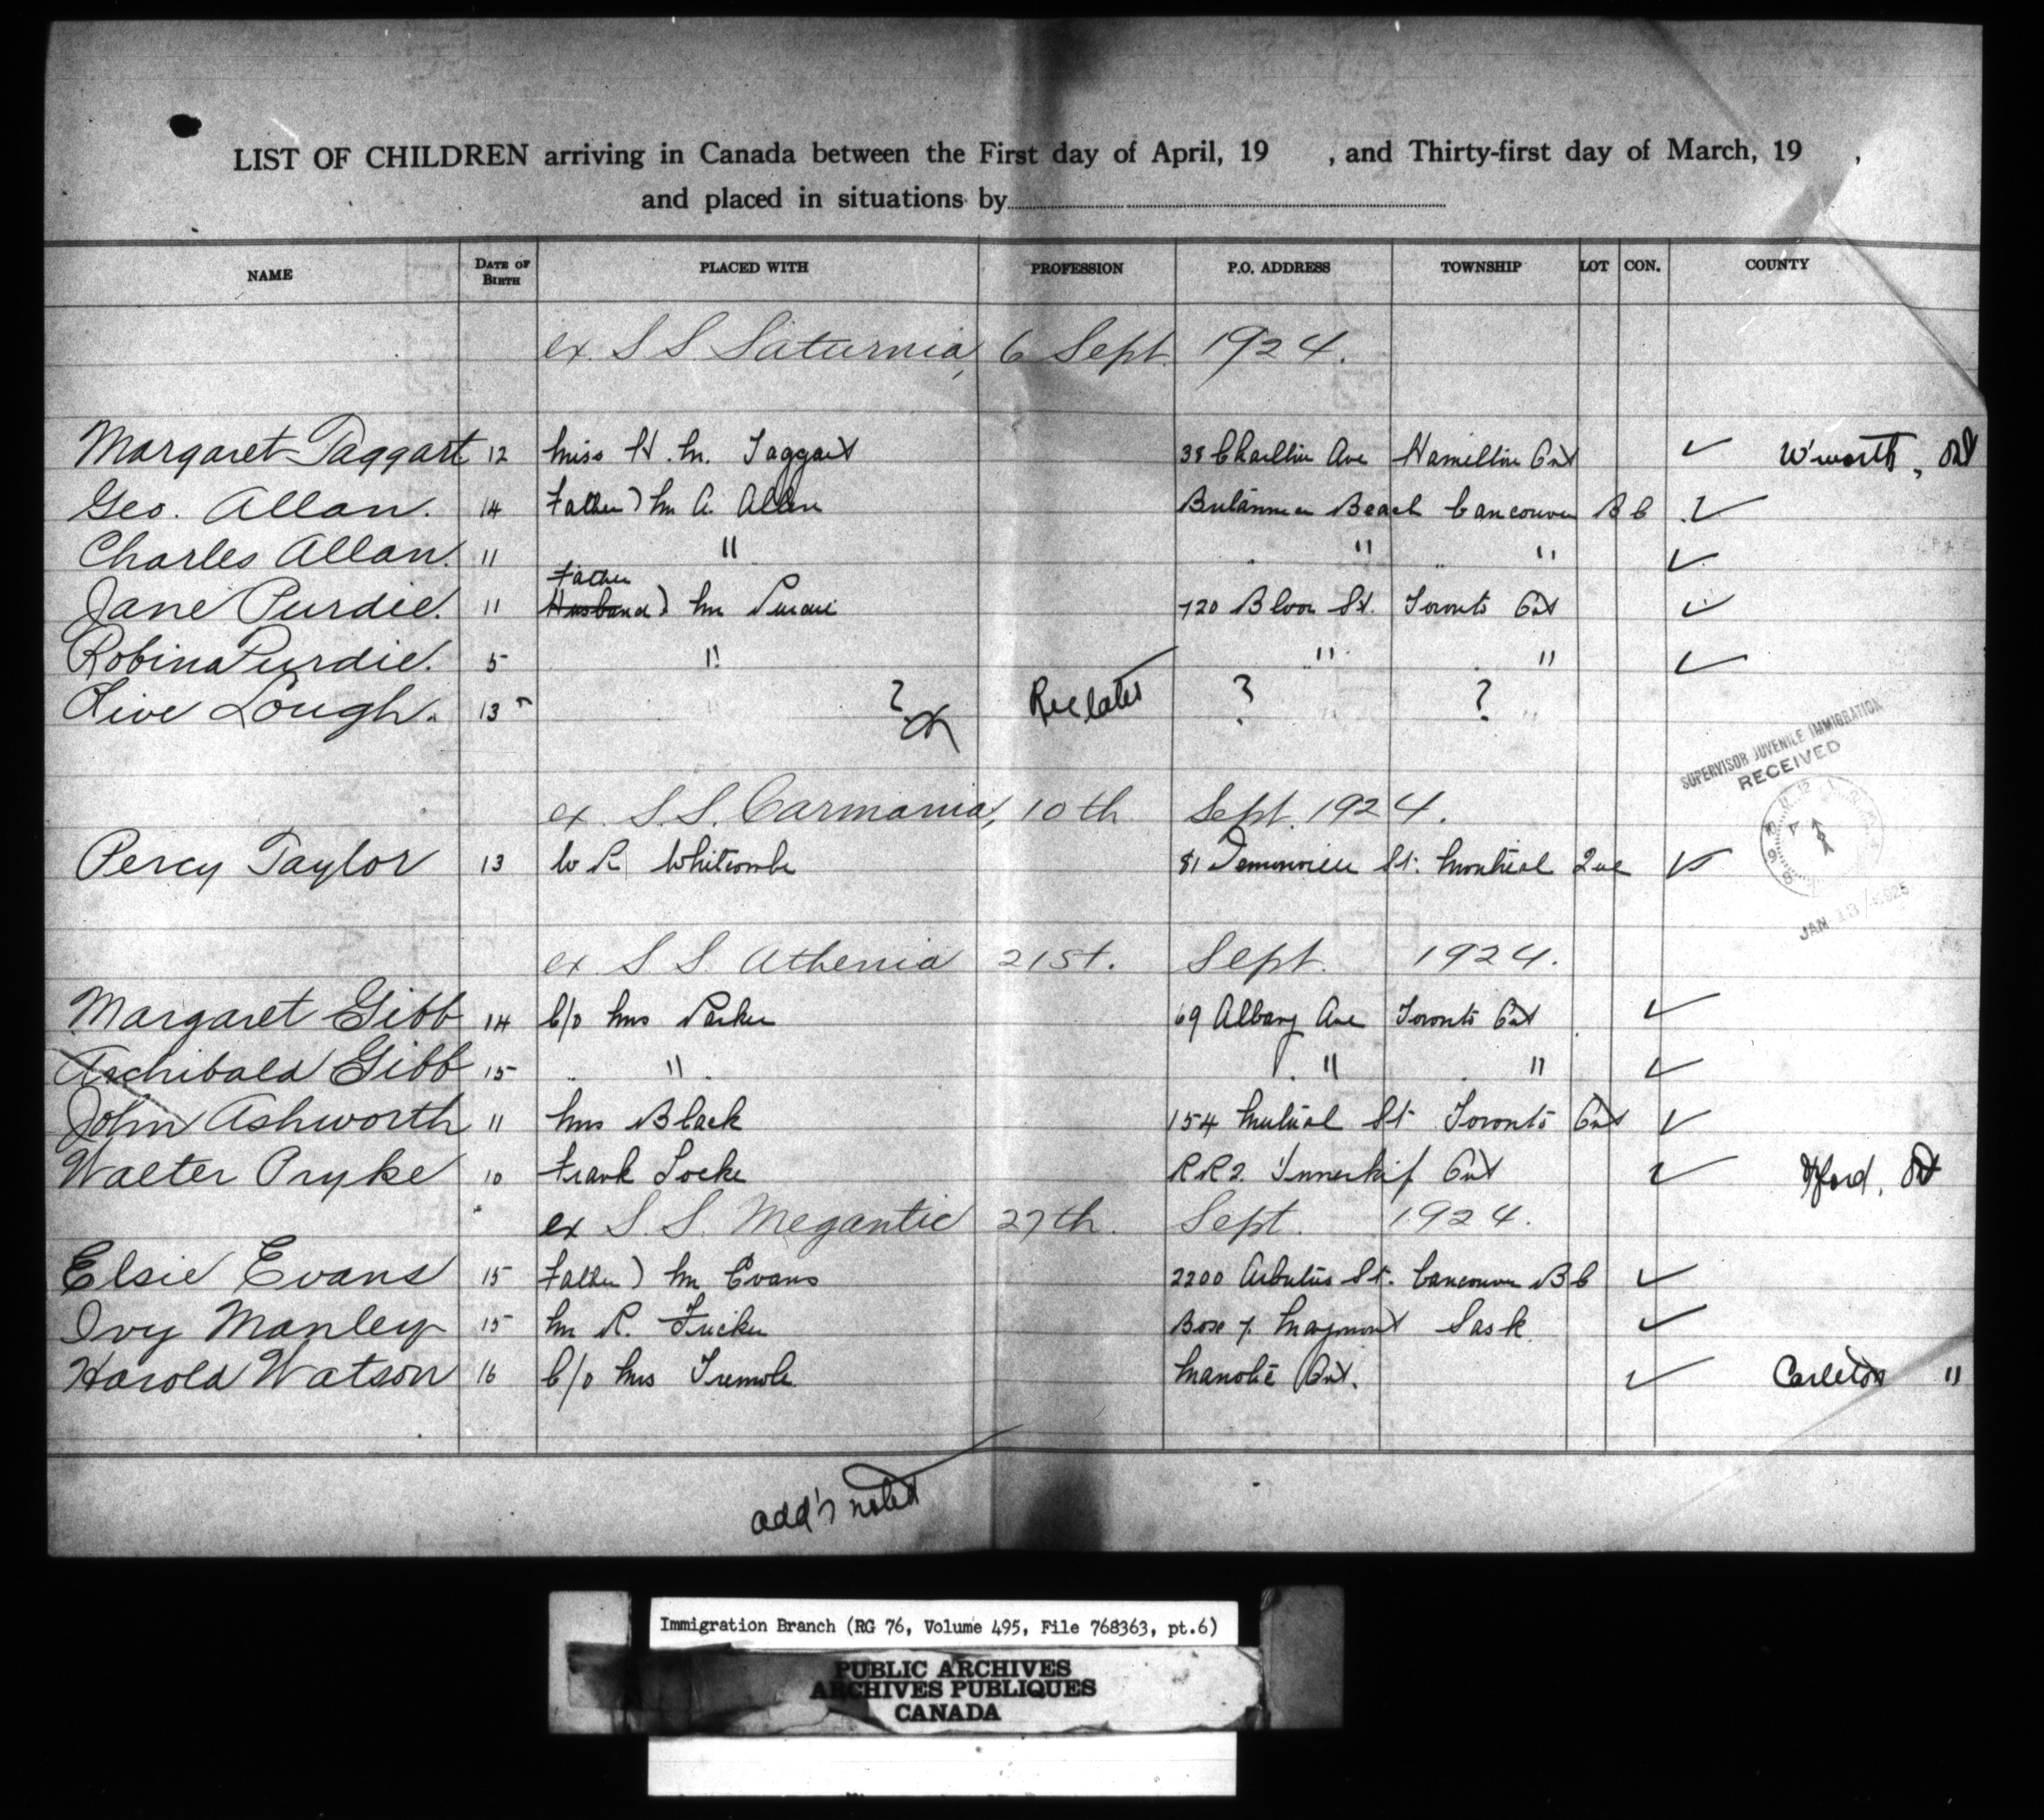 LIST OF CHILDREN arriving in Canada between the First day of April, 19 , and Thirty-first day of March, 19 ,
and placed in situations by
NAME DATE OF BIRTH PLACED WITH PROFESSION P.O. ADDRESS TOWNSHIP LOT CON. COUNTY
ex. S S Saturnia, 6 Sept. 1924.
Margaret Taggart 12 Miss H. M. Taggart 38 Ave Hamilton Ont ✓ W'worth, Ont
Geo. Allan. 14 Father) Mr A. Allan Britannia Beach Vancouver B C ✓
Charles Allan. 11 " " " ✓
Father
Jane Purdie. 11 Husband) Mr Purdie 720 Bloor St. Toronto Ont ✓
Robina Purdie. 5 " " " ✓
Olive Lough. 13 ? Rec later ? ?
SUPERVISOR JUVENILE IMMIGRATION
RECEIVED
JAN 13 1925
ex. S.S. Carmania, 10th Sept. 1924.
Percy Taylor 13 W R Whitcombe 81 St. Montreal Que ✓
ex. S S. Athenia 21st. Sept. 1924.
Margaret Gibb 14 C/o Mrs Parker 69 Albany Ave Toronto Ont ✓
Archibald Gibb 15 " " " ✓
John Ashworth 11 Mrs Black 154 Mutual St Toronto Ont ✓
Walter Pryke 10 Frank Locke R R 2. Innerkip Ont ✓ Oxford, Ont
ex S. S. Megantic 27th. Sept. 1924.
Elsie Evans 15 Father) Mr Evans 2200 Arbutus St. Vancouver B C ✓
Ivy Manley 15 Mr R. Fricker Box 7. Maymont Sask ✓
Harold Watson 16 C/o Mrs Manotic Ont. ✓ Carleton "
add's noted
Immigration Branch (RG 76, Volume 495, File 768363, pt.6)
PUBLIC ARCHIVES
ARCHIVES PUBLIQUES
CANADA